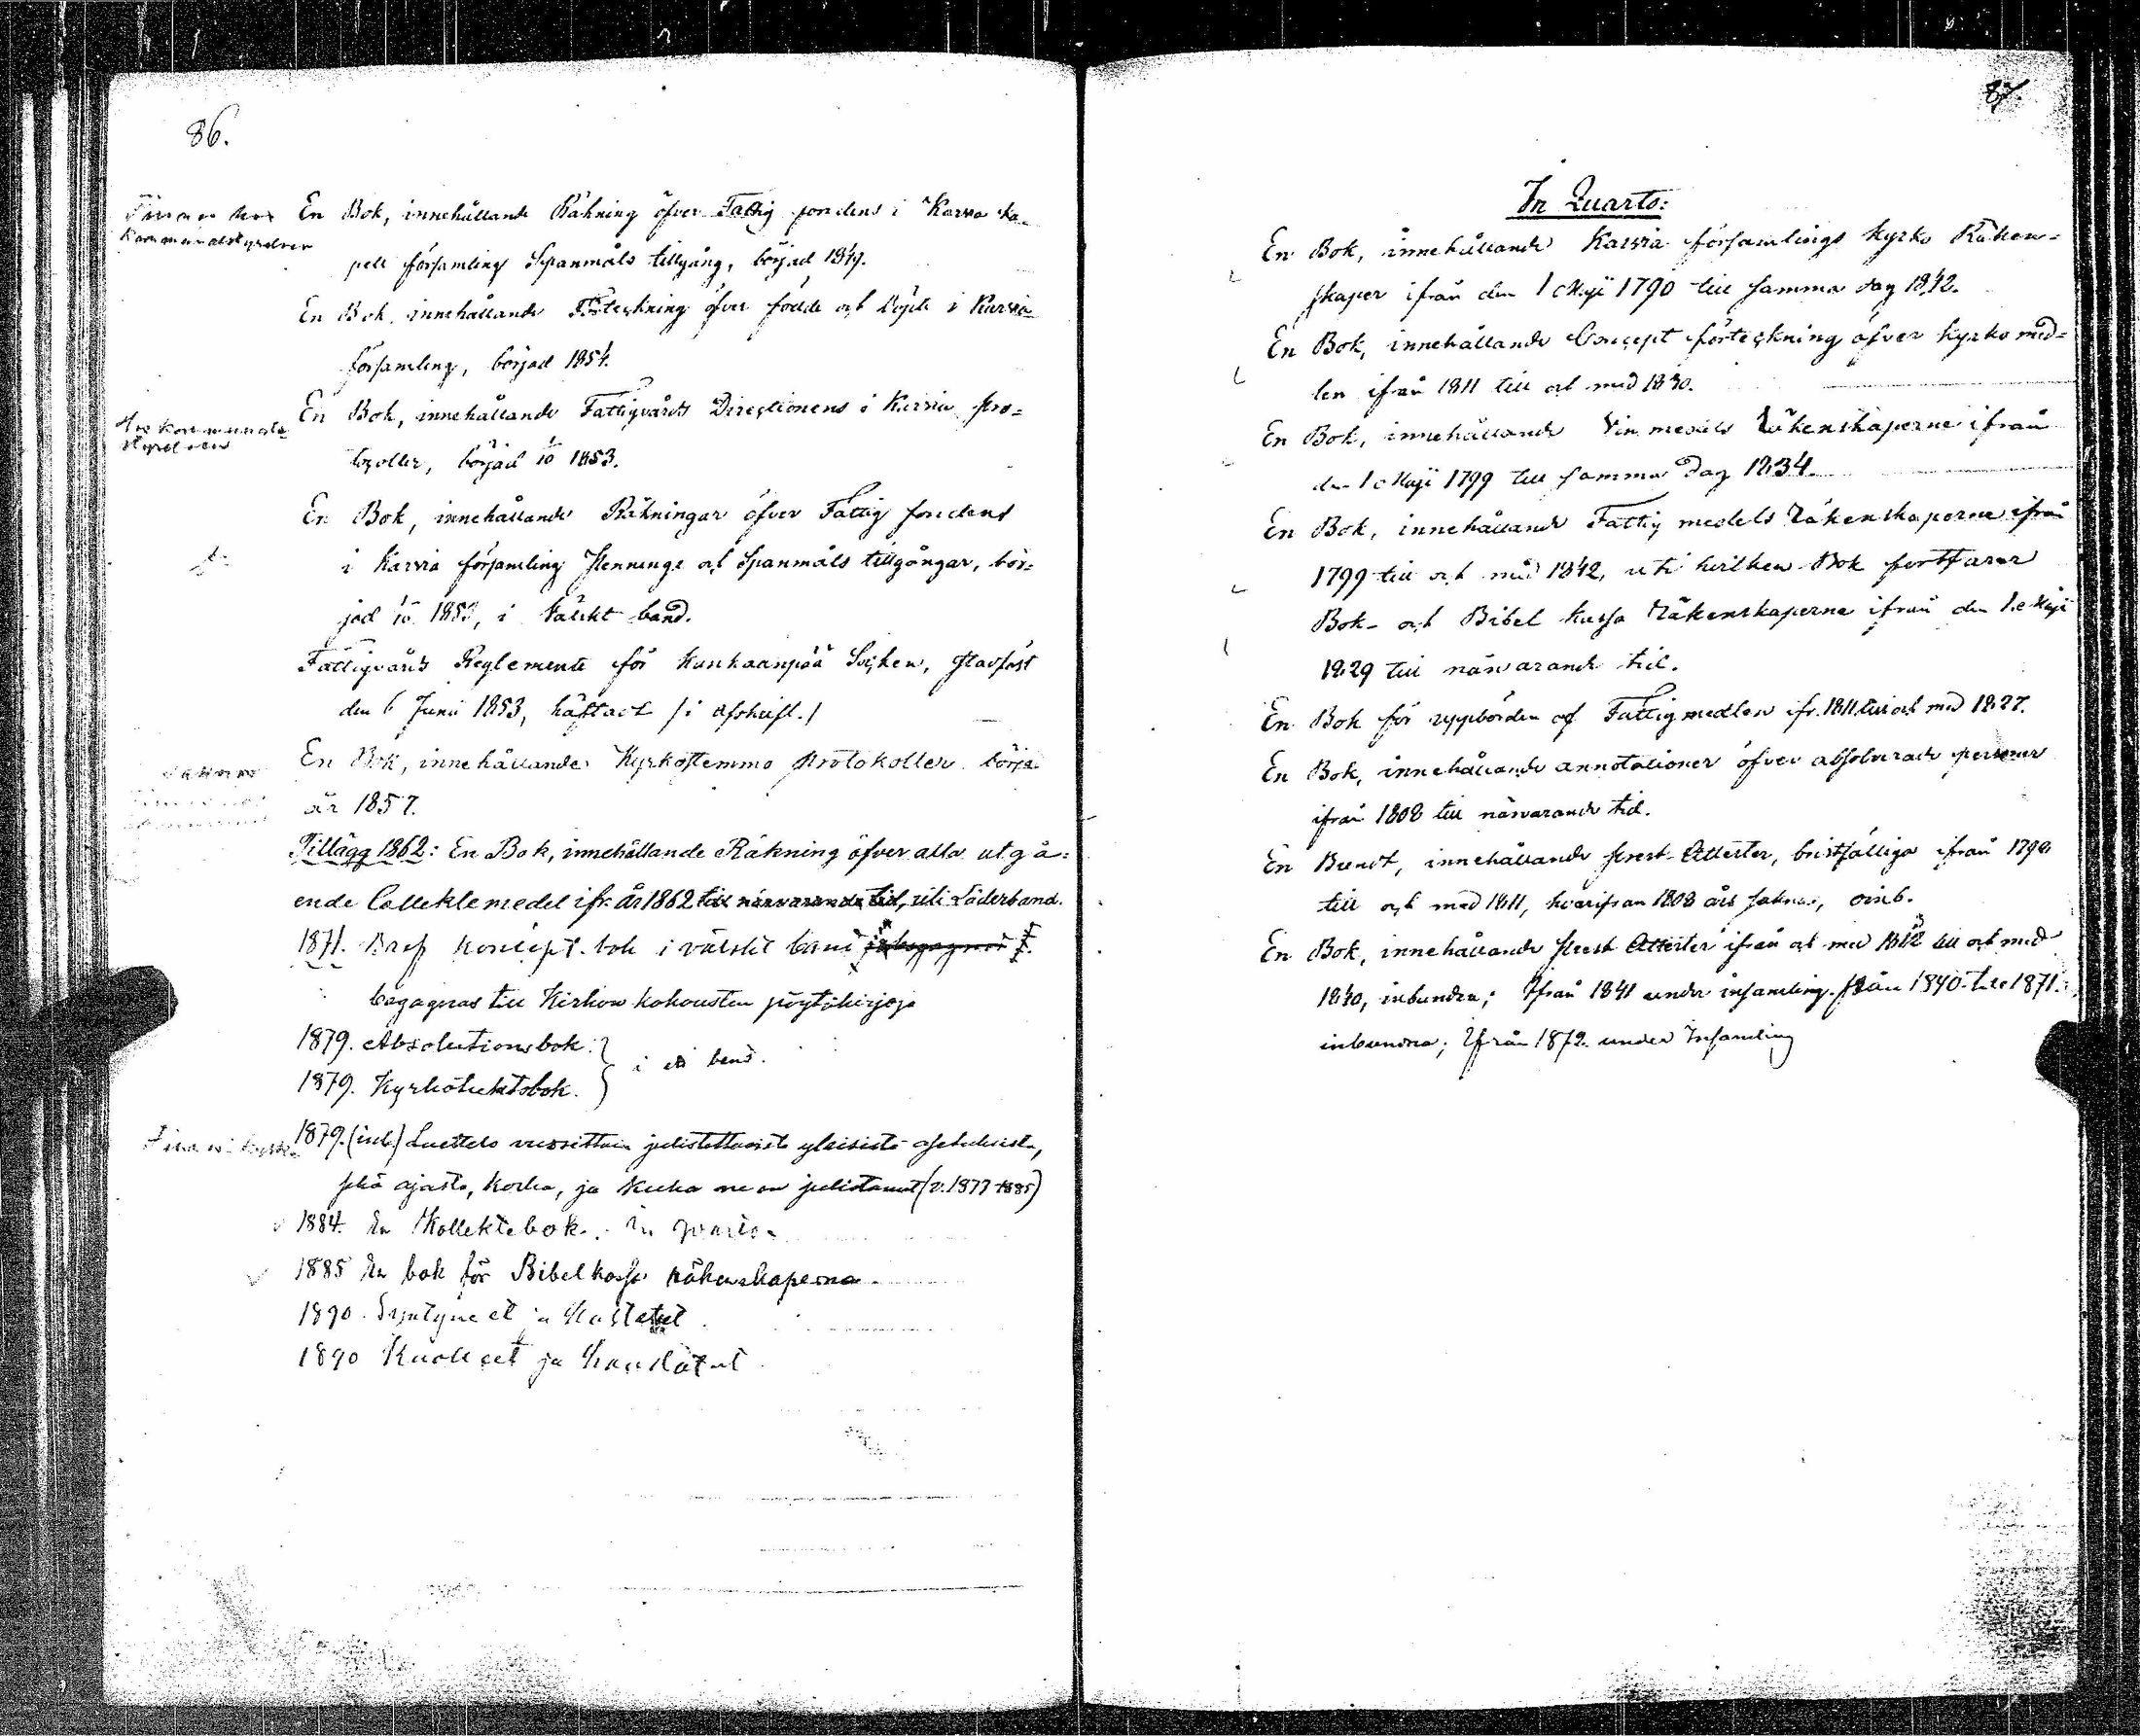 86.
Finnes hos
Kommunalstyrelsen
En Bok, innehållande Räkning öfver Fattig fondens i Karvia ka-
pell församling Spanmåls tillgång, börjad 1849.
En Bok, innehållande Förteckning öfver födde och döpte i Karvia
församling, börjad 1854.
Hos kommunal-
styrelsen
En Bok, innehållande Fattigvårds Directionens i Karvia pro=
tocoller, börjad 1/10 1853.
En Bok, innehållande Räkningar öfver Fattig fondens
i Karvia församling Penninge och Spanmåls tillgångar, bör=
jad 1/10 1853, i Valskt band.
Fattigvårds Reglemente för Kankaanpää Socken, stadfäst
den 6 Junii 1853, häftadt /i afskrift./
Saknas
En Bok, innehållande Kyrkostemmo protokoller börja
år 1857.
Tillägg 1862: En Bok, innehållande Räkning öfver alla utgå=
ende Collektemedel ifr. år 1862 till närvarande tid, uti Läderband.
1871. Bref koncept-bok i välskt band
begagnas till Kirkon kokousten pöytäkirjoja
1879. Absolutionsbok.
1879. Kyrkotuktsbok.
i ett band.
1879. (inb.) Luettelo vuosittain julistettavista yleisistä asetuksista,
sekä ajasta, koska, ja kuka ne on julistanut (v. 1877-1885)
1884. En Kollektebok. in quarto.
1885 En bok för Bibelkassa räkenskaperna.
1890. Syntyneet ja Kastetut.
1890 Kuolleet ja haudatut.
87.
In Quarto:
En Bok, innehållande Karvia församlings kyrko Räken=
skaper ifrån den 1 Maji 1790 till samma dag 1842.
En Bok, innehållande Concept förteckning öfver kyrko med=
len ifrån 1811 till och med 1830.
En Bok, innehållande Vin medels Räkenskaperne ifrån
den 1 Maji 1799 till samma dag 1834.
En Bok, innehållande Fattig medels Räkenskaperne ifrån
1799 till och med 1842, uti hvilken Bok fortfarer
Bok- och Bibel kassa Räkenskaperne ifrån den 1 Maji
1829 till närvarande tid.
En Bok för uppbörden af Fattigmedlen ifr. 1811 till och med 1827.
En Bok, innehållande annotationer öfver absolverade personer
ifrån 1808 till närvarande tid.
En Bundt, innehållande prest-Attester, bristfälliga ifrån 1790
till och med 1811, hvarifrån 1808 års saknas, oinb.
En Bok, innehållande prest Attester ifrån och med 1812 till och med
1840, inbundna; Ifrån 1841 under insamling. från 1840 till 1871.
inbundna; Ifrån 1872 under Insamling